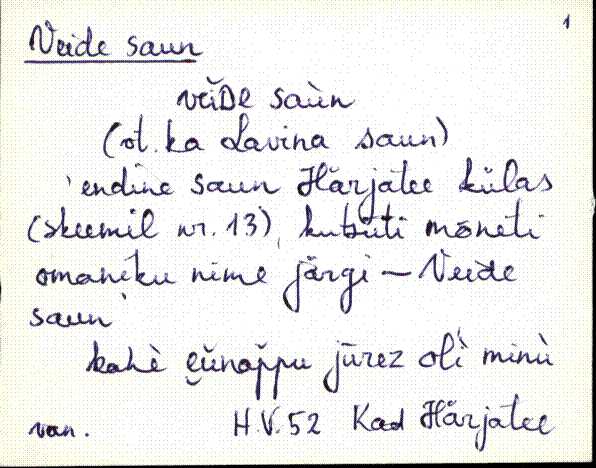 1
Veide saun
vĕiDe saùn
(vt. ka Lavina saun)
'endine saun Härjatee külas
(skeemil nr. 13), kutsuti mõneti
omaniku nime järgi – Veide
saun'
kahè ŭnappu jūrez olì minù
van. H.V.52 Kad Härjatee